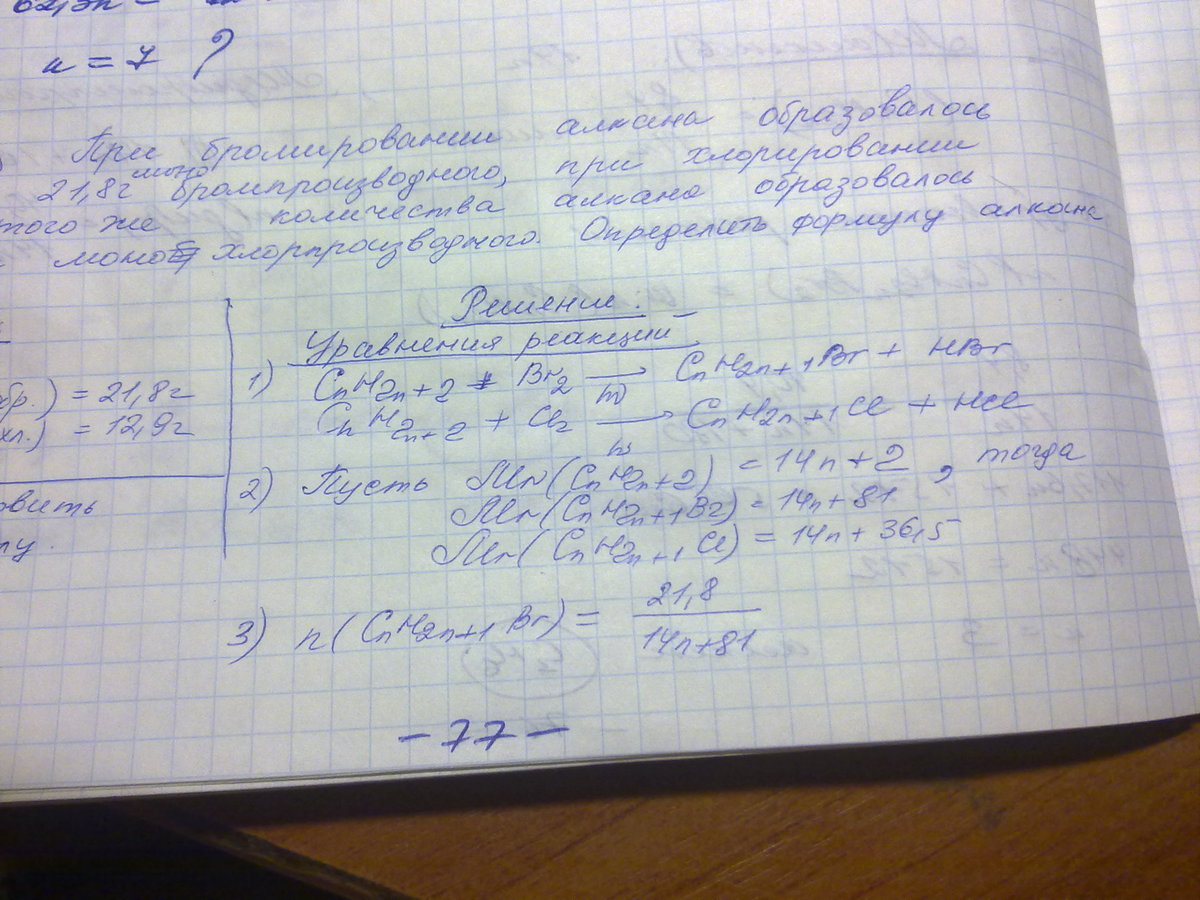 n = 7 ?
При бромировании алкана образовалось
21,8г моно бромпроизводного, при хлорировании
того же количества алкана образовалось
моно хлорпроизводного. Определить формулу алкана
Решение:
Уравнения реакции
1) CnH2n+2 + Br2 → CnH2n+1Br + HBr
CnH2n+2 + Cl2 → CnH2n+1Cl + HCl
бр.) = 21,8г
хл.) = 12,9г
2) Пусть Mr(CnH2n+2) = 14n+2, тогда
Mr(CnH2n+1Br) = 14n+81
Mr(CnH2n+1Cl) = 14n+36,5
овить
лу.
3) n(CnH2n+1Br) = 21,8
14n+81
- 77 -